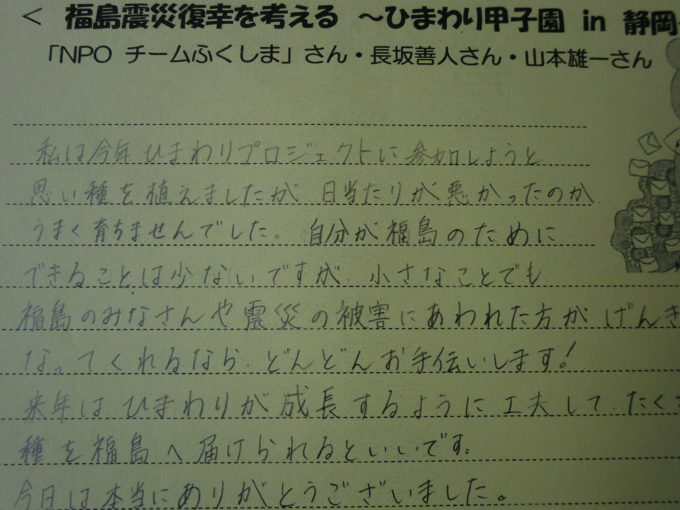 < 福島震災復幸を考える ～ひまわり甲子園 in 静岡
「NPO チームふくしま」さん・長坂善人さん・山本雄一さん
私は今年ひまわりプロジェクトに参加しようと
思い種を植えましたが 日当たりが悪かったのか
うまく育ちませんでした。自分が福島のために
できることは少ないですが、小さなことでも
福島のみなさんや震災の被害にあわれた方がげんき
なってくれるなら、どんどんお手伝いします!
来年はひまわりが成長するように工夫して、たくさ
種を福島へ届けられるといいです。
今日は本当にありがとうございました。